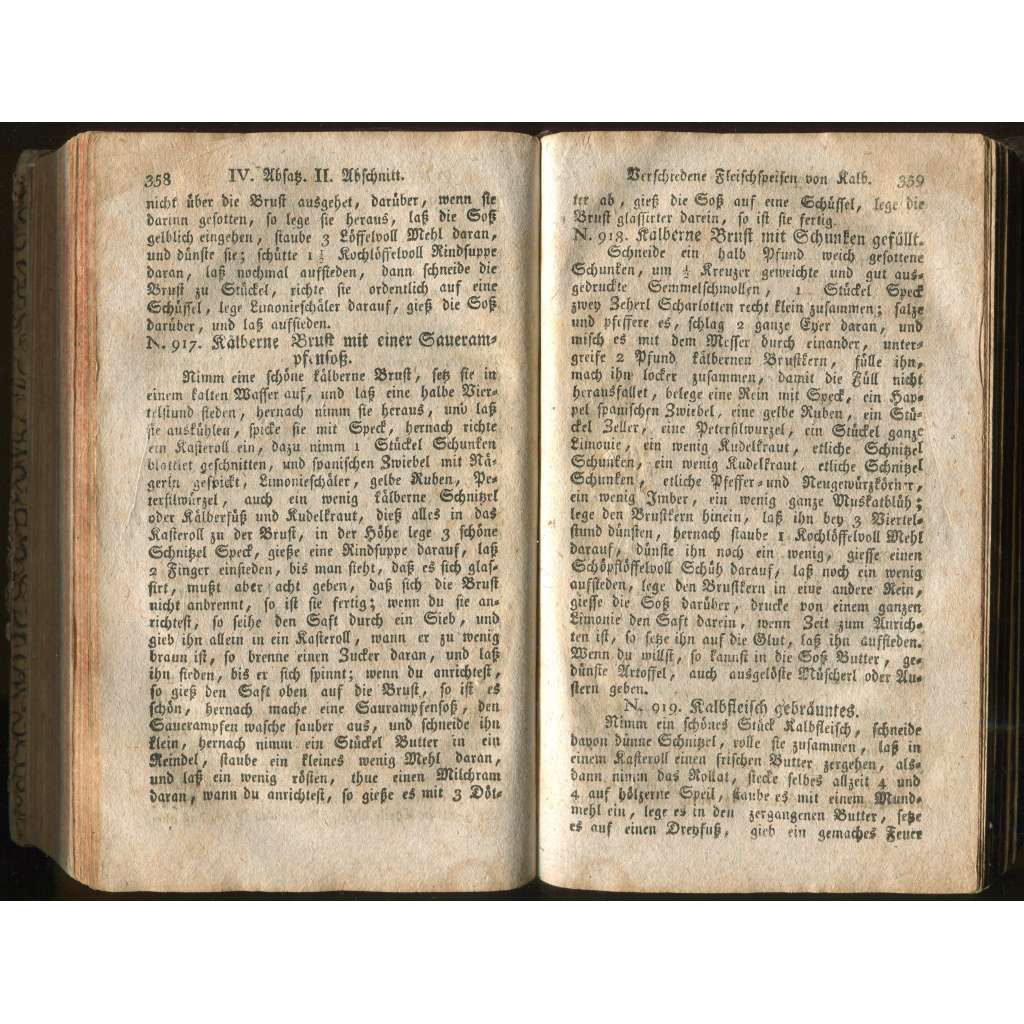 358 IV. Absatz. II. Abschnitt.
nicht über die Brust ausgehet, darüber, wenn sie
darinn gesotten, so lege sie heraus, laß die Soß
gelblich eingehen, staube 3 Löffelvoll Mehl daran,
und dünste sie; schütte 1 ½ Kochlöffelvoll Rindsuppe
daran, laß nochmal aufsieden, dann schneide die
Brust zu Stückel, richte sie ordentlich auf eine
Schüssel, lege Limonieschäler darauf, gieß die Soß
darüber, und laß aufsieden.
N. 917. Kälberne Brust mit einer Saueram-
pfensoß.
Nimm eine schöne kälberne Brust, setz sie in
einem kalten Wasser auf, und laß eine halbe Vier-
telstund sieden, hernach nimm sie heraus, und laß
sie auskühlen, spicke sie mit Speck, hernach richte
ein Kasteroll ein, dazu nimm 1 Stückel Schunken
blattlet geschnitten, und spanischen Zwiebel mit Nä-
gerln gespickt, Limonieschäler, gelbe Ruben, Pe-
tersilwürzel, auch ein wenig kälberne Schnitzel
oder Kälberfüß und Kudelkraut, dieß alles in das
Kasteroll zu der Brust, in der Höhe lege 3 schöne
Schnitzel Speck, gieße eine Rindsuppe darauf, laß
2 Finger einsieden, bis man sieht, daß es sich glas-
sirt, mußt aber acht geben, daß sich die Brust
nicht anbrennt, so ist sie fertig; wenn du sie an-
richtest, so seihe den Saft durch ein Sieb, und
gieb ihn allein in ein Kasteroll, wann er zu wenig
braun ist, so brenne einen Zucker daran, und laß
ihn sieden, bis er sich spinnt; wenn du anrichtest,
so gieß den Saft oben auf die Brust, so ist es
schön, hernach mache eine Saurampfensoß, den
Sauerampfen wasche sauber aus, und schneide ihn
klein, hernach nimm ein Stückel Butter in ein
Reindel, staube ein kleines wenig Mehl daran,
und laß ein wenig rösten, thue einen Milchram
daran, wann du anrichtest, so gieße es mit 3 Döt-
Verschiedene Fleischspeisen von Kalb. 359
ter ab, gieß die Soß auf eine Schüssel, lege die
Brust glassirter darein, so ist sie fertig.
N. 918. Kalberne Brust mit Schunken gefüllt.
Schneide ein halb Pfund weich gesottene
Schunken, um ½ Kreuzer geweichte und gut aus-
gedruckte Semmelschmollen, 1 Stückel Speck
zwey Zeherl Scharlotten recht klein zusammen; salze
und pfeffere es, schlag 2 ganze Eyer daran, und
misch es mit dem Messer durch einander, unter-
greife 2 Pfund kälbernen Brustkern, fülle ihn,
mach ihn locker zusammen, damit die Füll nicht
herausfallet, belege eine Rein mit Speck, ein Hap-
pel spanischen Zwiebel, eine gelbe Ruben, ein Stü-
ckel Zeller, eine Petersilwurzel, ein Stückel ganze
Limonie, ein wenig Kudelkraut, etliche Schnitzel
Schunken, ein wenig Kudelkraut, etliche Schnitzel
Schunken, etliche Pfeffer- und Neugewürzkörner,
ein wenig Imber, ein wenig ganze Muskatblüh;
lege den Brustkern hinein, laß ihn bey 3 Viertel-
stund dünsten, hernach staube 1 Kochlöffelvoll Mehl
darauf, dünste ihn noch ein wenig, giesse einen
Schöpflöffelvoll Schüh darauf, laß noch ein wenig
aufsieden, lege den Brustkern in eine andere Rein,
giesse die Soß darüber, drucke von einem ganzen
Limonie den Saft darein, wenn Zeit zum Anrich-
ten ist, so setze ihn auf die Glut, laß ihn aufsieden.
Wenn du willst, so kannst in die Soß Butter, ge-
dünste Artoffel, auch ausgelöste Müscherl oder Au-
stern geben.
N. 919. Kalbfleisch gebräuntes.
Nimm ein schönes Stück Kalbfleisch, schneide
davon dünne Schnitzel, rolle sie zusammen, laß in
einem Kasteroll einen frischen Butter zergehen, als-
dann nimm das Rollat, stecke selbes allzeit 4 und
4 auf hölzerne Speil, staube es mit einem Mund-
mehl ein, lege es in den zergangenen Butter, setze
es auf einen Dreyfuß, gieb ein gemaches Feuer